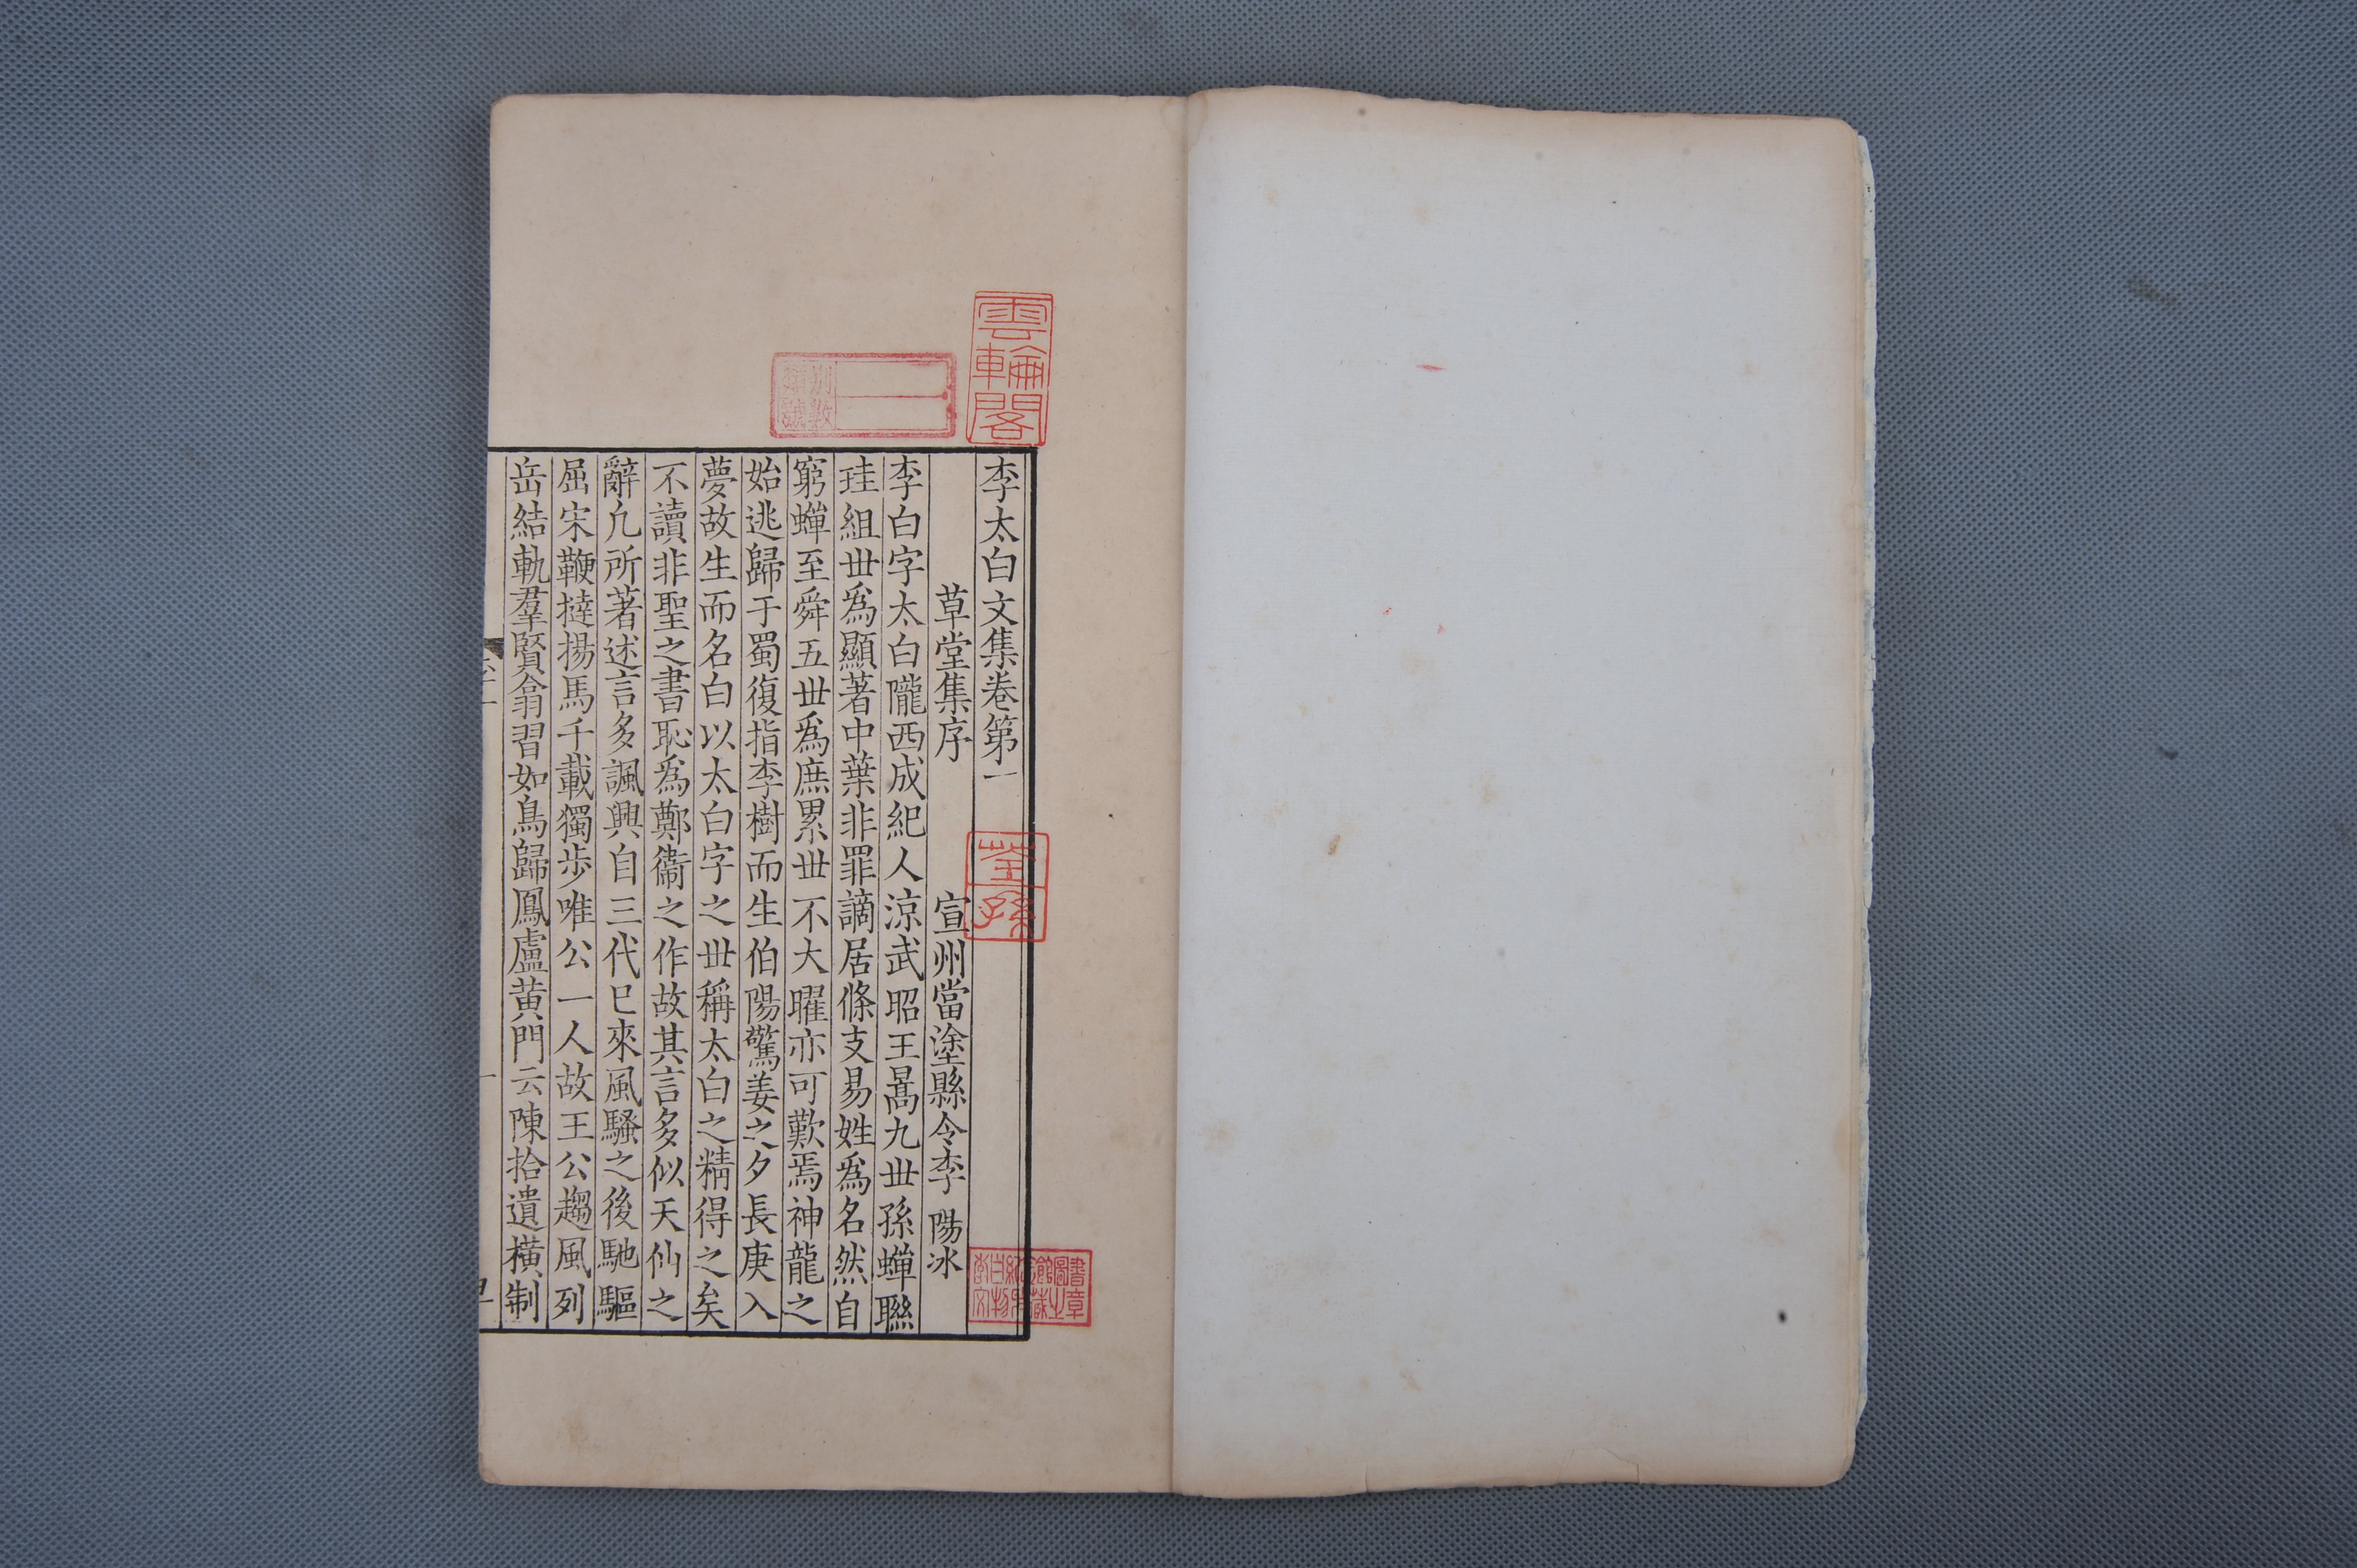 李太白文集卷第一
草堂集序
宣州當塗縣令李陽冰
李白字太白隴西成紀人涼武昭王暠九世孫蟬聯
珪組世爲顯著中葉非罪謫居條支易姓爲名然自
窮蟬至舜五世爲庶累世不大曜亦可歎焉神龍之
始逃歸于蜀復指李樹而生伯陽驚姜之夕長庚入
夢故生而名白以太白字之世稱太白之精得之矣
不讀非聖之書恥爲鄭衞之作故其言多似天仙之
辭凡所著述言多諷興自三代已來風騷之後馳驅
屈宋鞭撻揚馬千載獨步唯公一人故王公趨風列
岳結軌羣賢翕習如鳥歸鳳盧黄門云陳拾遺橫制
雲輪閣
類別
號數
荃孫
李白紀念館圖書
文物所藏之章